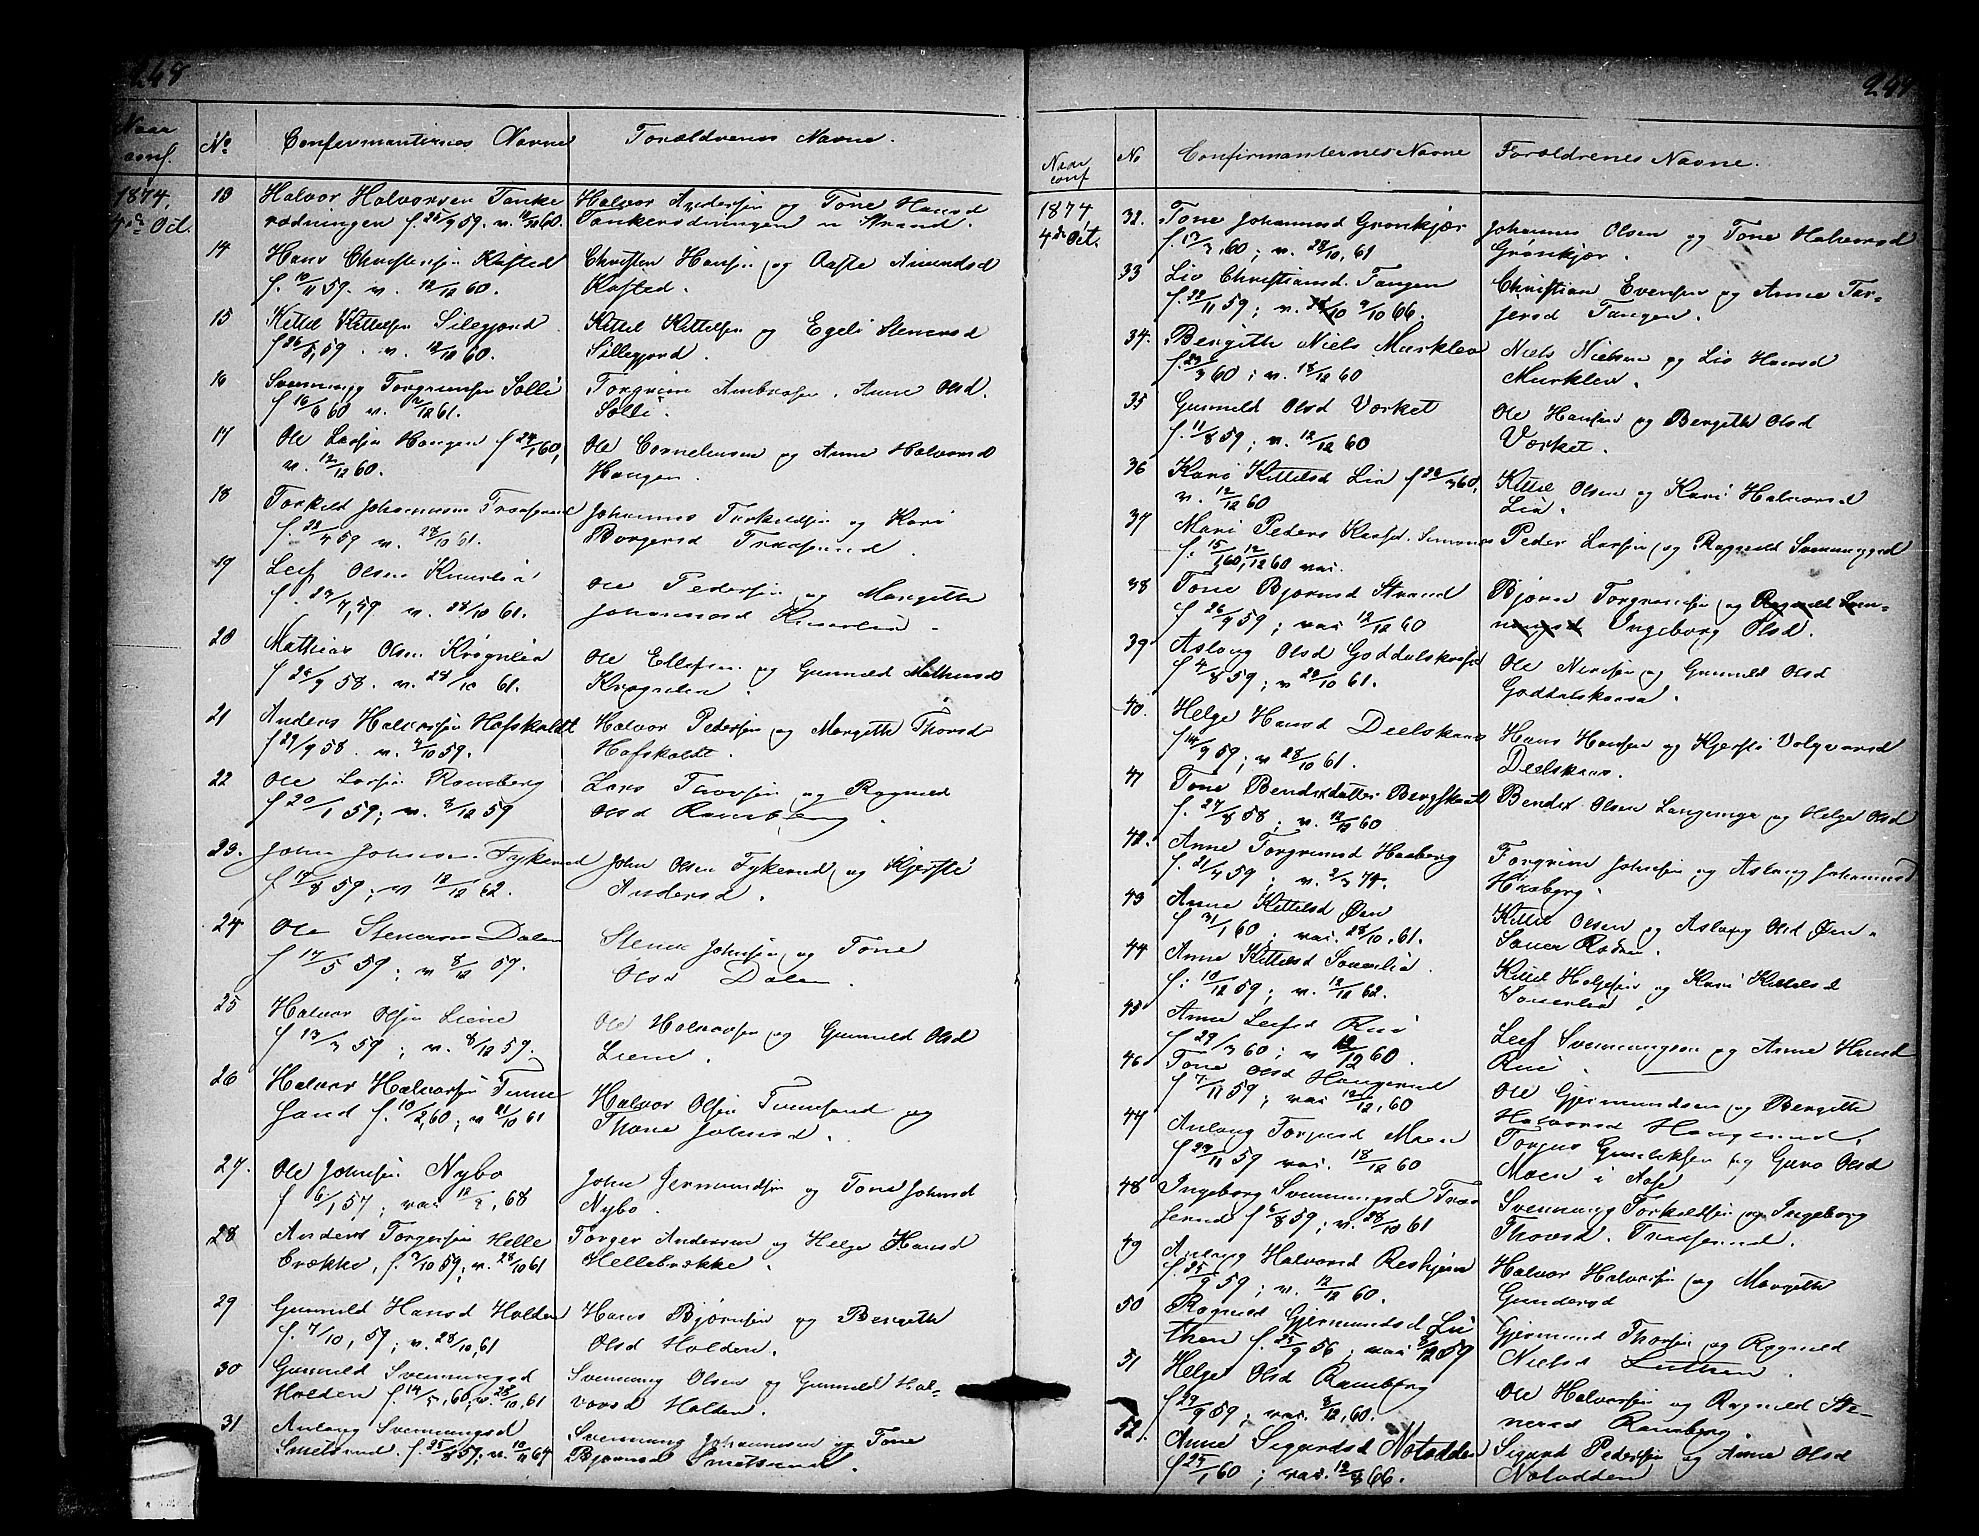 248
Naar conf.
No
Confirmanternes Navne
Forældrenes Navne.
1874,
4de Oct.
13
Halvor Halvorsen Tanke
Halvor Andersen og Tone Hansd
rødningen f. 25/9 59. v. 60.
Tankerødningen u Strand.
14
Hans Christensen Kasted
Christen Hansen og Aaste Amundsd
f. 10/11 59. v. 12/12 60.
Kasted.
15
Kittil Kittelsen Silegjord
Kittil Kittelsen og Egeli Stenersd
f 26/5, 59. v. 12/12 60.
Sillegjord.
16
Svennung Torgrimsen Solli
Torgrim Ambrosen. Anne Olsd.
f 60 v. 61.
Solli
17
Ole Larsen Haugen f 60,
Ole Cornelius og Anne Halvorsd
v. 12/12 60.
Haugen.
18
Torkild Johannesen
Johannes Torkildsen og Kari
f. 59 v. 28/10 61.
Borgersd
19
Leif Olsen Knurlia
Ole Pedersen og Margith
f. 59 v. 28/10 61.
Johannesd
20
Mathias Olsen Krognlia
Ole Ellefsen og Gunnild Mathiasd
f 58. v. 28/10 61.
21
Anders Halvorsen Hofskaldt
Halvor Pedersen og Margith Thorsd
f 29/9 58. v. 10 59.
Hofskaldt.
22
Ole Larsen Ramberg
Lars Thorsen og Ragnild
f 20/1 59; v. 8/12 59
Olsd Ramberg.
23.
John Johnsen Tykerud
John Olsen Tykerud og Kjersti
f 59; v 62.
Andersd.
24
Ole Stenersen Dalen
Stener Johnsen og Tone
f 17/5 59; v 8/12 59.
Olsd Dalen.
25
Halvor Olsen Liene
Ole Halvorsen og Gunnild Olsd
f 13/3 59; v. 8/12 59.
Liene.
26
Halvor Halvorsen Tinne
Halvor Olsen Tinnesand og
sand f. 10/2, 60; v 21/10 61
Thone Johnsd.
27.
Ole Johnsen Nybo
John Jermundsen og Tone Johnsd
f 6/1, 57; vac 68
Nybo.
28
Anders Torgersen Helle
Torger Andersen og Helge Hansd
brække, f. 59; v. 28/10 61
Hellebrække.
29
Gunnild Hansd Holden
Hans Bjørnsen og Bergith
f. 7/10, 59; v. 28/10, 61
Olsd Holden.
30
Gunnild Svennungsd
Svennung Olsen og Gunnild Hal-
Holden f. 14/5, 60, v. 28/10, 61
vorsd Holden.
31
Aslaug Svennungsd
Svennung Johannesen og Tone
Smetsrud. f. 25/8 59; v. 10/11 64
Bjørnsd Smetsrud.
Naar conf
No
Confirmanternes Navne
Forældrenes Navne.
1874
4de Oct.
32.
Tone Johannesd Grønkjær
Johannes Olsen og Tone Halvorsd
f. 60; v. 28/10, 61
Grønkjær.
33
Liv Christiansd. Tangen
Christian Evensen og Anne Tor-
f. 22/11 59; v. 66.
jersd Tangen.
34.
Bergith Niels Murklev
Niels Nielsen og Liv Hansd
f. 23/3 60; v. 18/12 60
Murklev.
35
Gunnild Olsd Værket
Ole Hansen og Bergith Olsd
f. 11/8 59; v. 12/12 60
Værket.
36
Kari Kittilsd Lia f 60,
Kittil Olsen og Kari Halvorsd
v. 12/12 60
Lia.
37
Mari Peders
Peder Larsen og Ragnild Svennungsd
f. 15/1 60, 12/12 60 vac.
38
Tone Bjørnsd Strand
Bjørn Torgrimsen og Ragnild Sven-
f 26/9 59; vac 12/12 60
nungsd Ingeborg Olsd.
39
Aslaug Olsd
Ole Nirisen og Gunnild Olsd
f 4/8 59; v 61.
40.
Helge Hansd Deelskaas
Hans Hansen og Kjersti Volquarsd
f 14/9 59; v 28/10 61.
Deelskaas.
41
Tone Bendixdatter
Bendix Olsen og Helge Olsd
f. 27/8 58; v. 60
42.
Anne Torgrimsd Haaberg
Torgrim Johnsen og Aslaug Johannesd
f. 59; v. 2/3 74.
Haaberg.
43
Anne Kittilsd Øen
Kittil Olsen og Aslaug Olsd Øen.
f 31/1, 60; vac. 28/10, 61.
44
Anne Kittilsd Sauerlia.
Kittil Helgesen og Kari Kittilsd
f: 10/12 59; v. 12/12 62.
Sauerlia.
45
Anne Leifsd Rui
Leif Svennungsen og Anne Hansd
f 29/3 60; v 12/12 60.
Rui.
46
Tone Olsd Haugerud
Ole Gjermundsen og Bergith
f 7/11 59; vac 12/12, 60
Halvorsd Haugerud.
47
Aslaug Torjusd Moen
Torjus Gunleiksen og Guro Olsd
f 59 vac. 18/12 60
Moen i Aase
48
Ingeborg Svennungsd Traa
Svennung Torkeldsen og Ingeborg
serud f 6/8 59; v. 28/10 61
Thorsd. Traaserud.
49
Aslaug Halvorsd Reskjem
Halvor Halvorsen og Margith
f. 25/9 59; v. 12/12 60.
Gundersd
50
Ragnild Gjermundsd Lu
Gjermund Thorsen og Ragnild
then f. 25/9 56; vac 8/12 59
Nielsd Luthen.
51
Helge Olsd Ramberg
Ole Halvorsen og Ragnild Ste-
f 29/9 59; vac. 8/12, 60.
nersd Ramberg.
52.
Anne Sigurdsd Notodden
Sigurd Pedersen og Anne Olsd
f 29/1 60; vac. 12/8 66.
Notodden